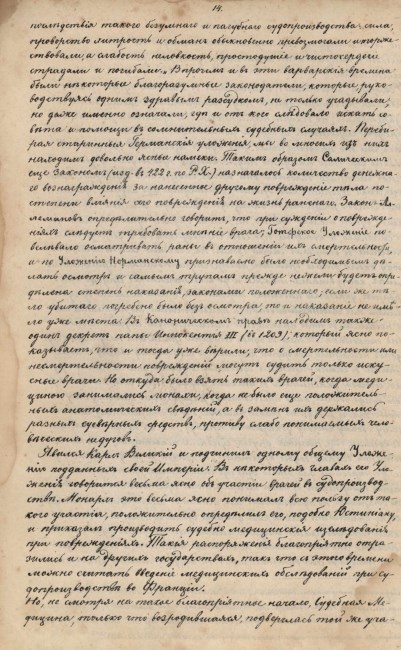 14.
последствія такого безумнаго и пагубнаго судопроизводства: сила,
проворство хитрость и обманъ обыкновенно превозмогали и торже
ствовали, а слабость неловкость, простодушіе и чистосердіе
страдали и погибали. Впрочемъ и въ эти варварскія времена
были некоторые благоразумные законодатели, которые руко-
водствуясь однимъ здравымъ разсудкомъ, не только угадывали,
но даже именно означали, гдѣ и отъ кого слѣдовало искать со
вѣта и помощи въ сомнительныхъ судебныхъ случаяхъ. Переби-
рая старинныя Германскія уложенія, мы во многихъ изъ нихъ
находимъ довольно ясны намеки. Такимъ образомъ Салическимъ
еще Закономъ (изд. въ 422 г. по Р.Х.) назначалось количество денежна-
го вознагражденія за нанесенное другому поврежденіе тѣла по
степени вліянія его поврежденія на жизнь раненаго. Законъ Ал-
лемановъ опредѣлительно говоритъ, что при сужденіи о поврежде-
ніяхъ слѣдуетъ требовать мнѣніе врача; Готфское Уложеніе по-
велѣвало осматривать раны въ отношеніи ихъ смертельности,
а по Уложенію Норманскому признавалось было необходимымъ дѣ-
лать осмотръ и самымъ трупамъ прежде нежели будетъ опре-
дѣлена степень наказанія, законами положеннаго; если же тѣ-
ло убитаго погребено было безъ осмотра, то и наказаніе не имѣ-
ло уже мѣста. Въ Каноническомъ правѣ находимъ также
одинъ декретъ папы Иннокентія III (въ 1209), который ясно по-
казываетъ, что и тогда уже вѣрили, что о смертельности или
несмертельности поврежденій могутъ судить только искус-
ные врачи. Но откуда было взять такихъ врачей, когда меди-
циною занимались монахи, когда не было еще положитель-
ныхъ анатомическихъ свѣдѣній, а въ замѣнъ ихъ держались
разныхъ суевѣрныхъ средствъ, противу слабо понимаемыхъ чело-
вѣческихъ недуговъ.
Явился Карлъ Великій и подчинилъ одному общему Уложе-
нію подданныхъ своей Имперіи. Въ некоторыхъ главахъ его Уло-
женія говорится весьма ясно объ участіи врачей въ судопроизвод-
ствѣ. Монархъ это весьма ясно понималъ всю пользу отъ та-
кого участія, положительно опредѣлилъ его, подобно Юстиніану,
и приказалъ производить судебно медицинскія изслѣдованія
при поврежденіяхъ. Такія распоряженія благопріятно отра-
зились и на другихъ государствахъ, такъ что съ этого времени
можно считать введеніе медицинскихъ обслѣдованій при су-
допроизводствѣ во Франціи.
Но, не смотря на такое благопріятное начало, Судебная Ме-
дицина, только что возродившаяся, подверглась той же уча-